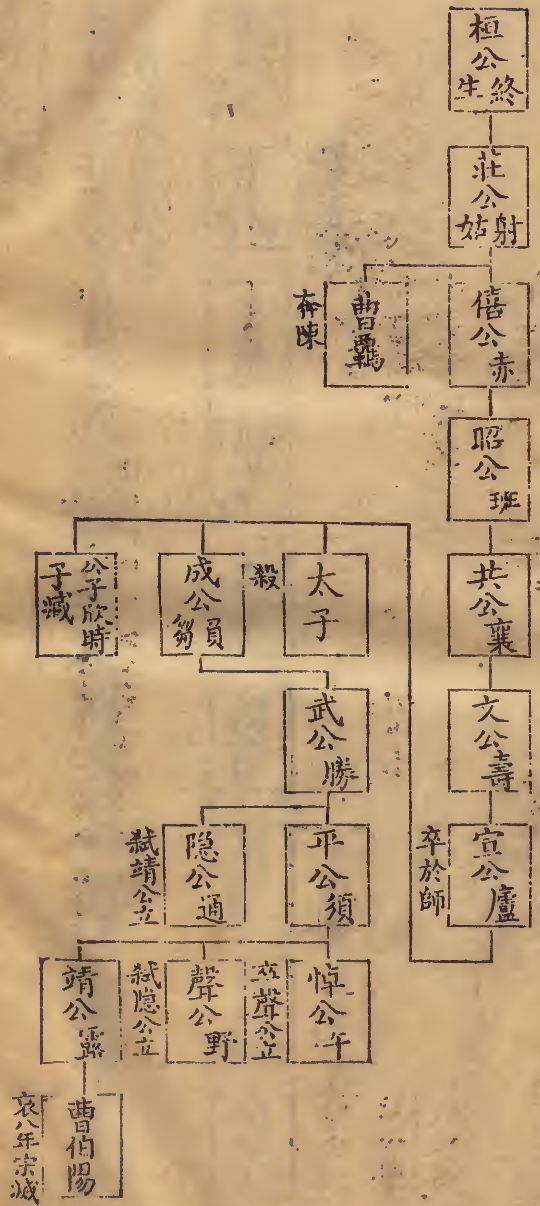 桓公
終生
莊公
射姑
僖公
赤
曹羈
奔陳
昭公
班
共公
襄
文公
壽
宣公
廬
卒於師
太子
殺
成公
負芻
公子欣時
子臧
武公
勝
平公
須
隐公
通
弑靖公立
悼公
午
卒聲公立
聲公
野
弑隐公立
靖公
露
曹伯陽
哀八年宋滅